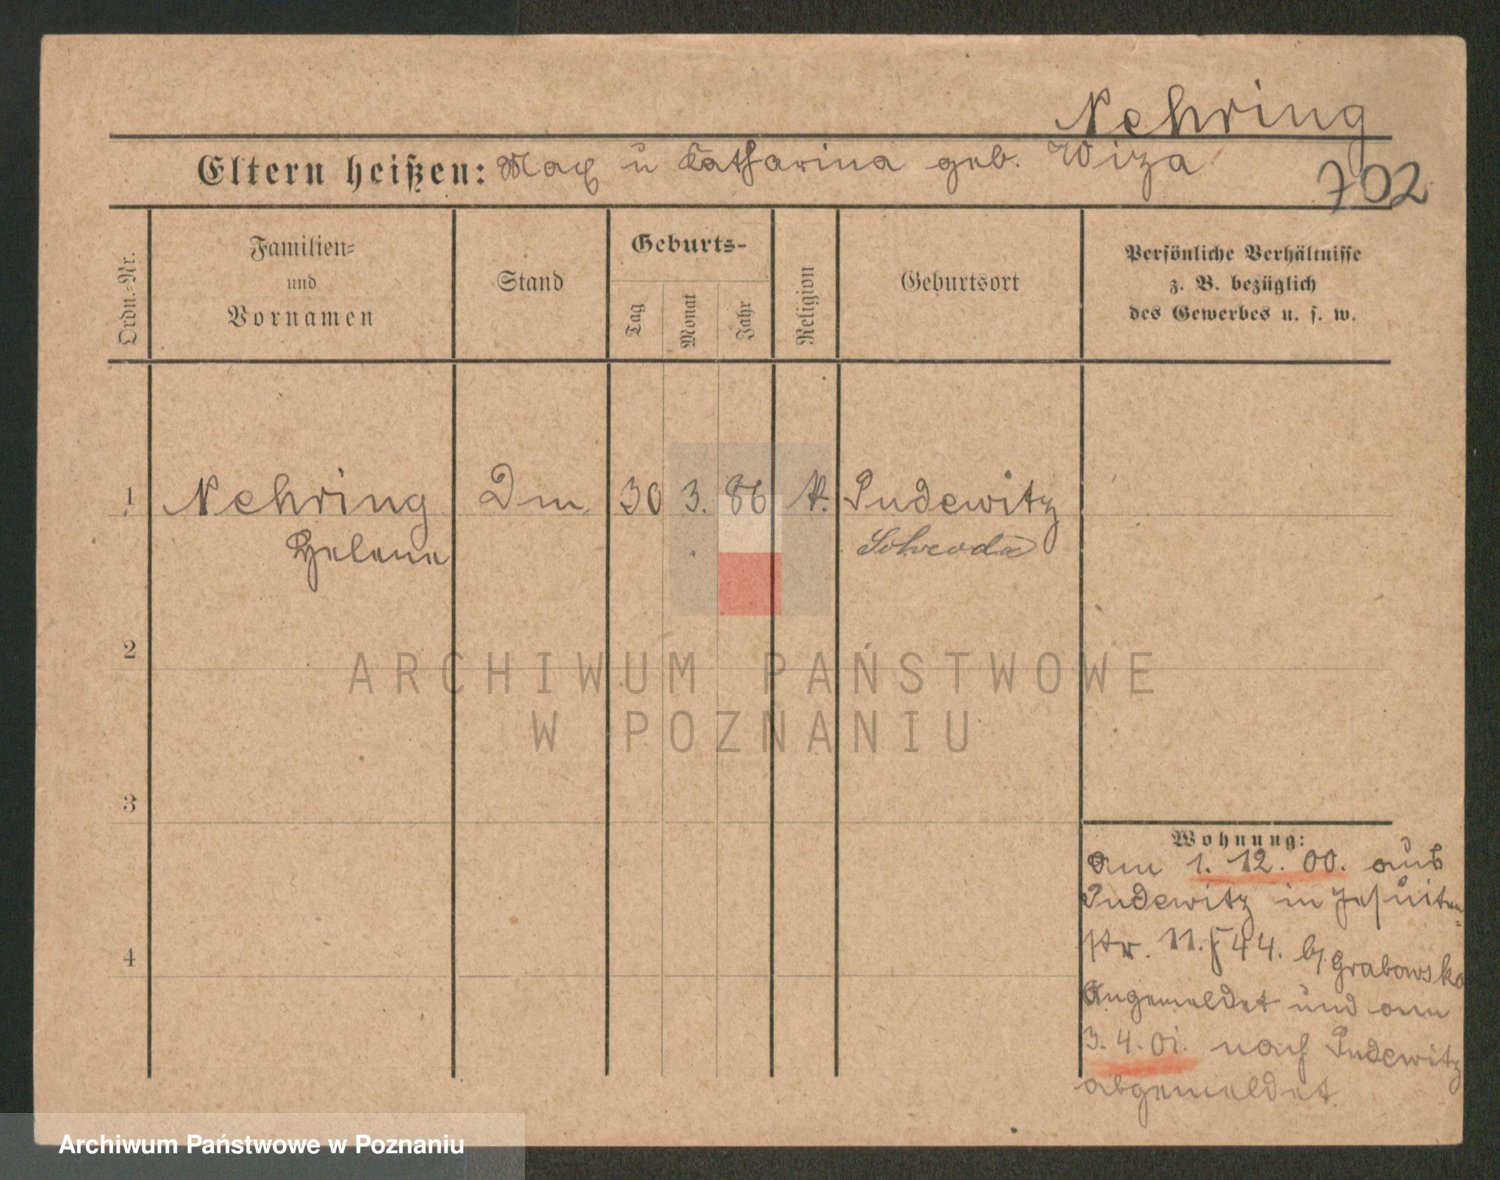 Nehring
Eltern heißen: Max u Katharina geb. Wiza
702
Ordn.-Nr.
Familien-
und
Vornamen
Stand
Geburts-
Tag
Monat
Jahr
Religion
Geburtsort
Persönliche Verhältnisse
z. B. bezüglich
des Gewerbes u. s. w.
1 Nehring Dm 30 3. 86 k. Pudewitz
Helene Schroda
2
ARCHIWUM PAŃSTWOWE
W POZNANIU
3
Wohnung:
Am 1. 12. 00. aus
Pudewitz in Jesuiten-
str. 11. 44. b/ Grabowska
Angemeldet und am
4
3. 4. 01. nach Pudewitz
abgemeldet.
Archiwum Państwowe w Poznaniu